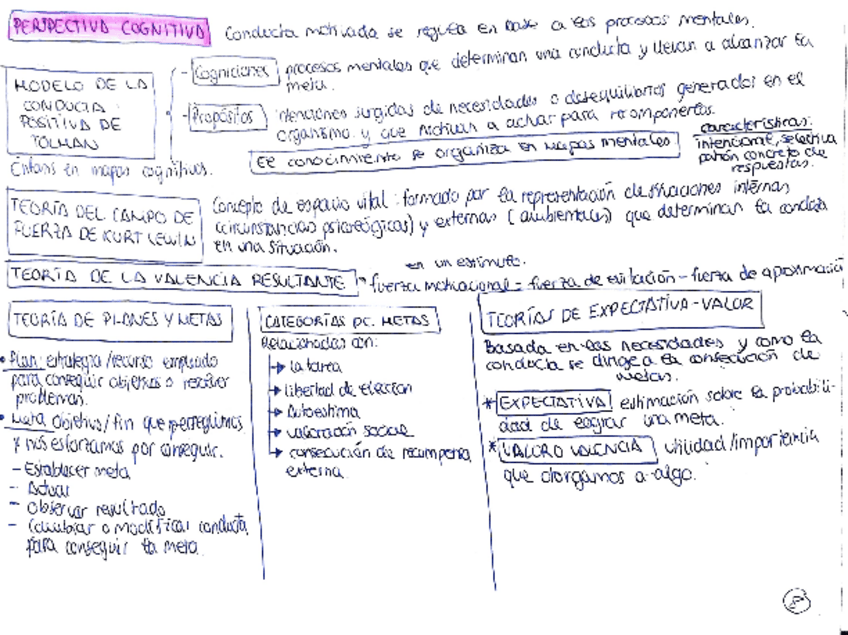 PERSPECTIVA COGNITIVA Conducta motivada se regula en base a los procesos mentales.
MODELO DE LA
CONDUCTA
POSITIVA DE
TOLMAN
- Cogniciones procesos mentales que determinan una conducta y llevan a alcanzar la
meta.
- Propósitos intenciones surgidas de necesidades o desequilibrios generados en el
organismo y que motivan a actuar para recomponerlos.
El conocimiento se organiza en mapas mentales
características:
intencional, selectiva
patrón concreto de
respuestas.
Énfasis en mapas cognitivos.
TEORÍA DEL CAMPO DE
FUERZA DE KURT LEWIN
Concepto de espacio vital: formado por la representación de situaciones internas
(circunstancias psicológicas) y externas (ambientales) que determinan la conducta
en una situación.
en un estímulo.
TEORÍA DE LA VALENCIA RESULTANTE - fuerza motivacional = fuerza de evitación - fuerza de aproximació
TEORÍA DE PLANES Y METAS
• Plan: estrategia/recurso empleado
para conseguir objetivos o resolver
problemas.
• Meta objetivo/fin que perseguimos
y nos esforzamos por conseguir.
- Establecer meta
- Actuar
- Observar resultado
- Cambiar o modificar conducta
para conseguir la meta.
CATEGORÍAS DE METAS
Relacionadas con:
→ la tarea
→ libertad de elección
→ Autoestima
→ valoración social
→ consecución de recompensa
externa
TEORÍAS DE EXPECTATIVA-VALOR
Basada en las necesidades y como la
conducta se dirige a la consecución de
metas.
* EXPECTATIVA estimación sobre la probabili-
dad de lograr una meta.
* VALOR O VALENCIA utilidad/importancia
que otorgamos a algo.